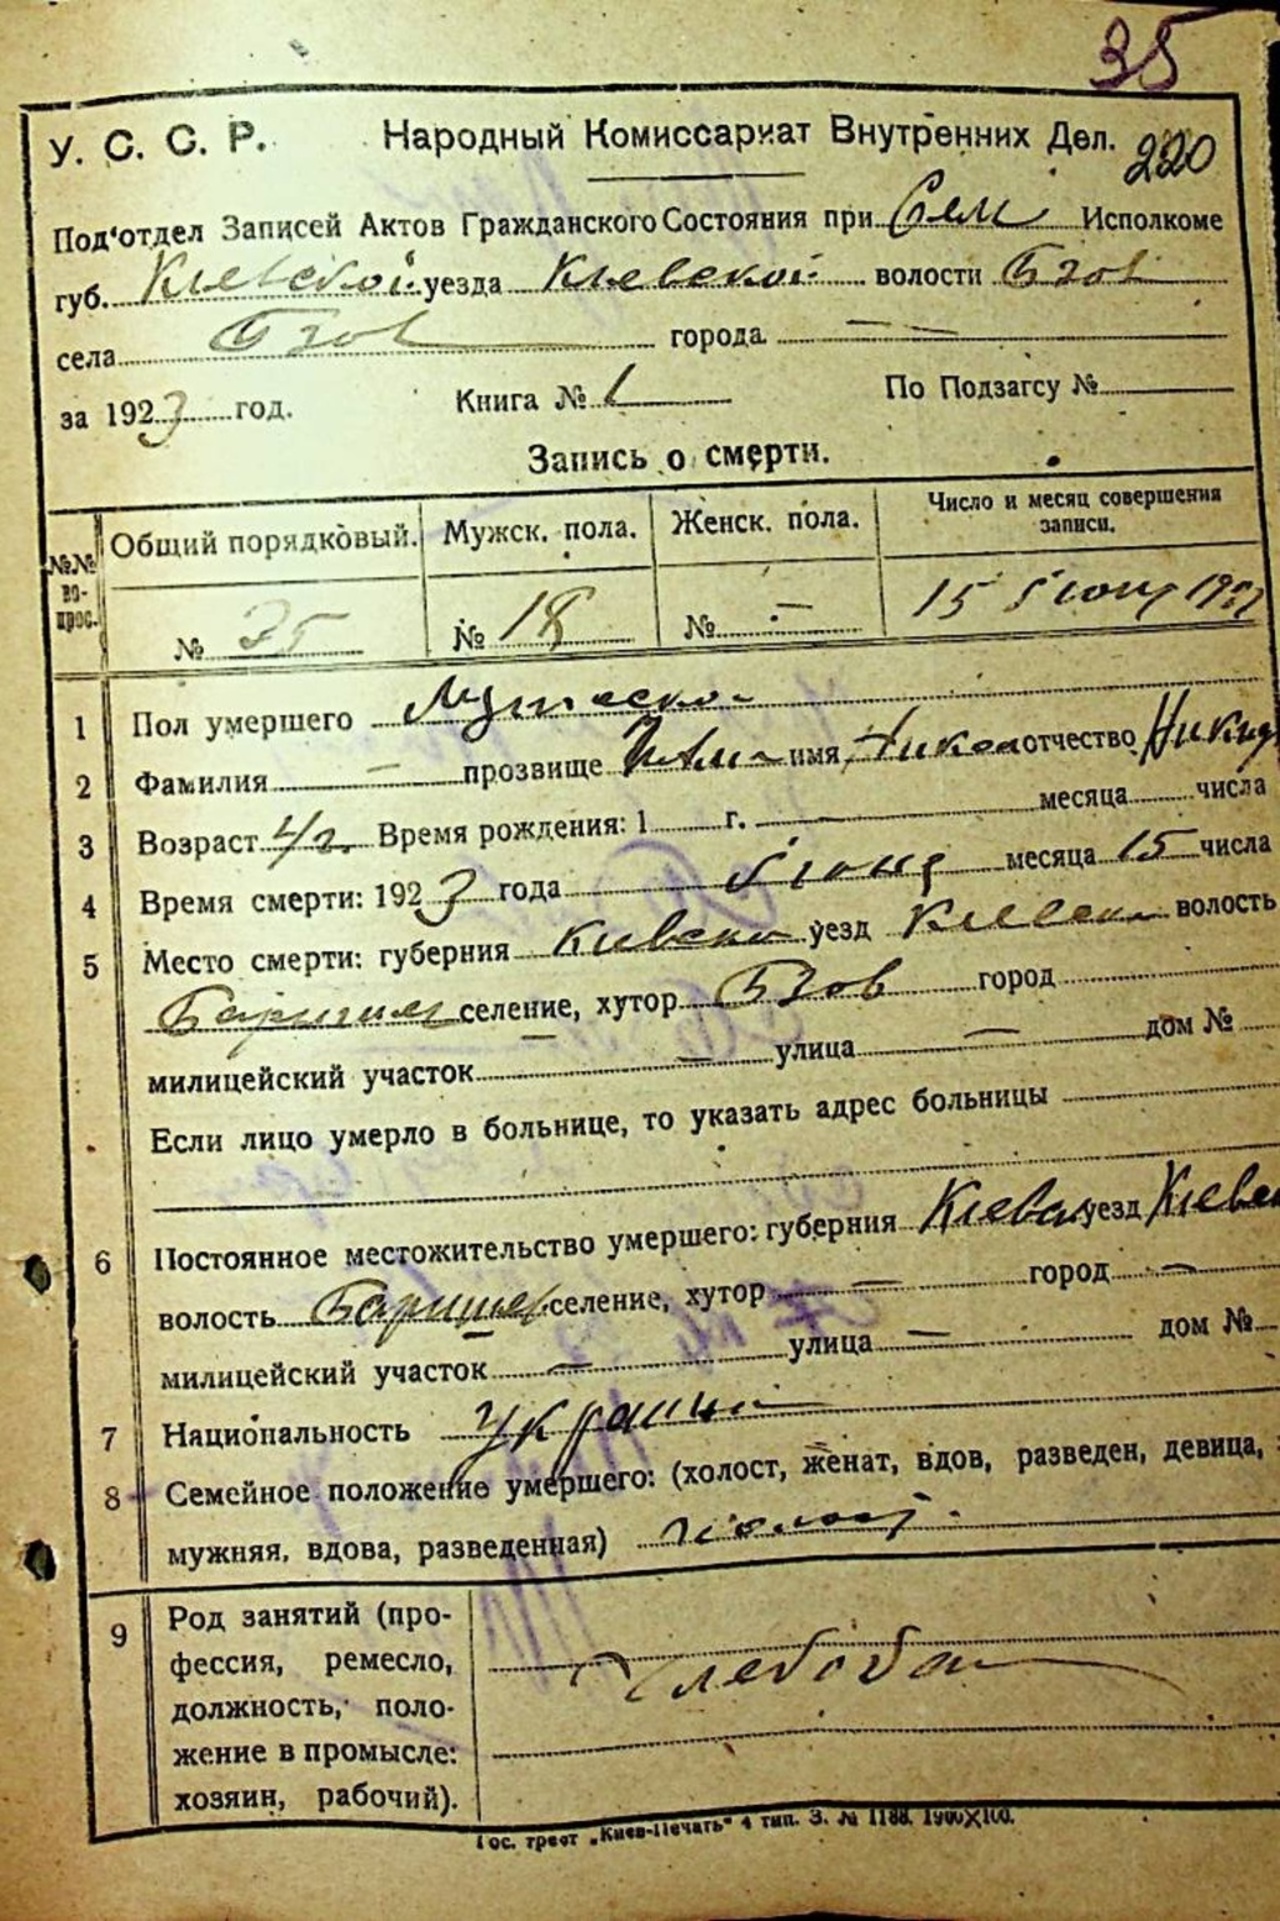 35
У. С. С. Р. Народный Комиссариат Внутренних Дел. 220
Под'отдел Записей Актов Гражданского Состояния при Сел Исполкоме
губ. Киевской уезда Киевской волости Бзов
села Бзов города —
за 1923 год. Книга № 1 По Подзагсу №
Запись о смерти.
№№ вопрос. Общий порядковый. Мужск. пола. Женск. пола. Число и месяц совершения записи.
№ 35 № 18 № — 15
1 Пол умершего Мужеско
2 Фамилия — прозвище имя отчество
3 Возраст 4 г. Время рождения: 1 г. — месяца числа
4 Время смерти: 1923 года месяца 15 числа
5 Место смерти: губерния Киевско уезд Киевск волость
Баришев селение, хутор Бзов город
милицейский участок — улица — дом №
Если лицо умерло в больнице, то указать адрес больницы
6 Постоянное местожительство умершего: губерния Киевск уезд Киевс
волость Баришев селение, хутор — город —
милицейский участок — улица — дом №
7 Национальность Украин
8 Семейное положение умершего: (холост, женат, вдов, разведен, девица,
мужняя, вдова, разведенная) холост
9 Род занятий (про-
фессия, ремесло,
должность, поло- Хлебоба
жение в промысле:
хозяин, рабочий).
Гос. трест „Киев-Печать" 4 тип. З. № 1188. 1900Х100.